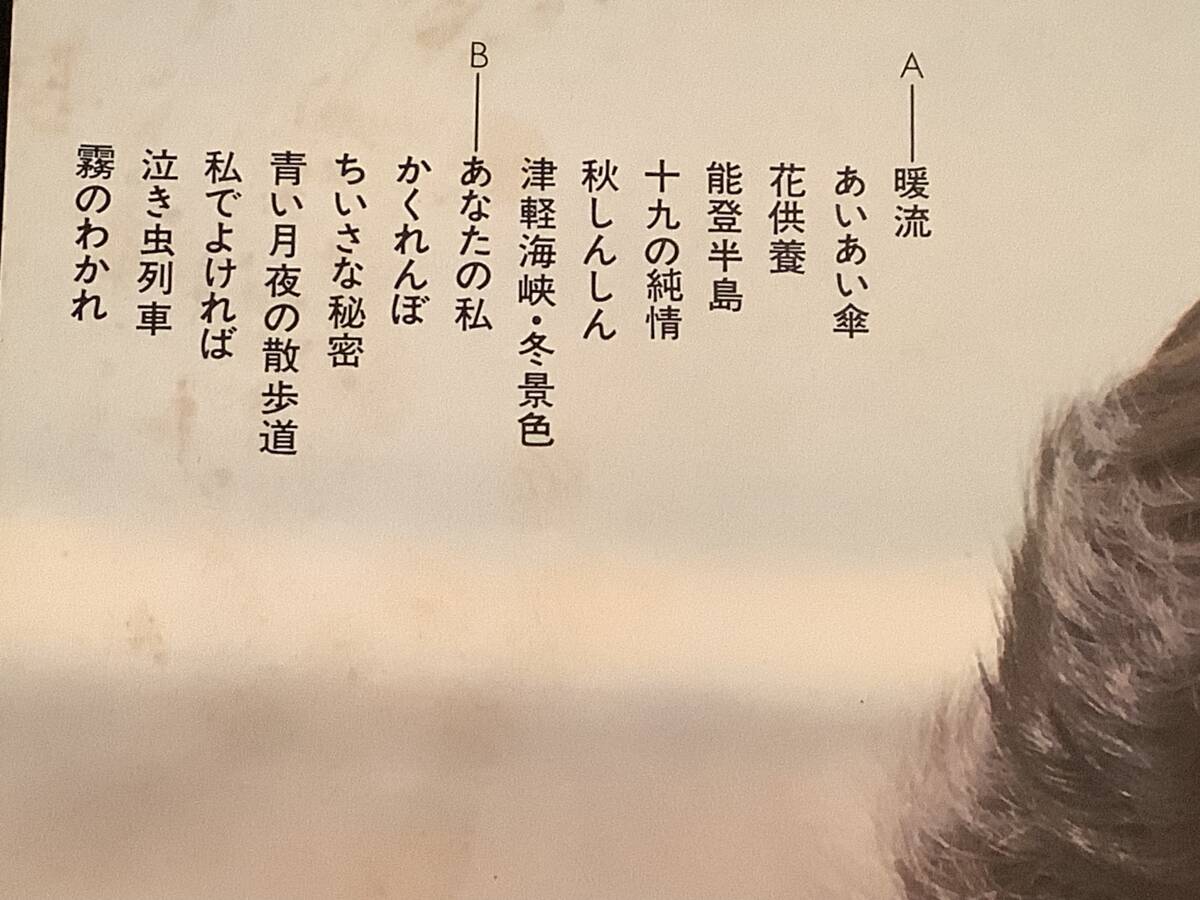 A──暖流
あいあい傘
花供養
能登半島
十九の純情
秋しんしん
津軽海峡・冬景色
B──あなたの私
かくれんぼ
ちいさな秘密
青い月夜の散歩道
私でよければ
泣き虫列車
霧のわかれ